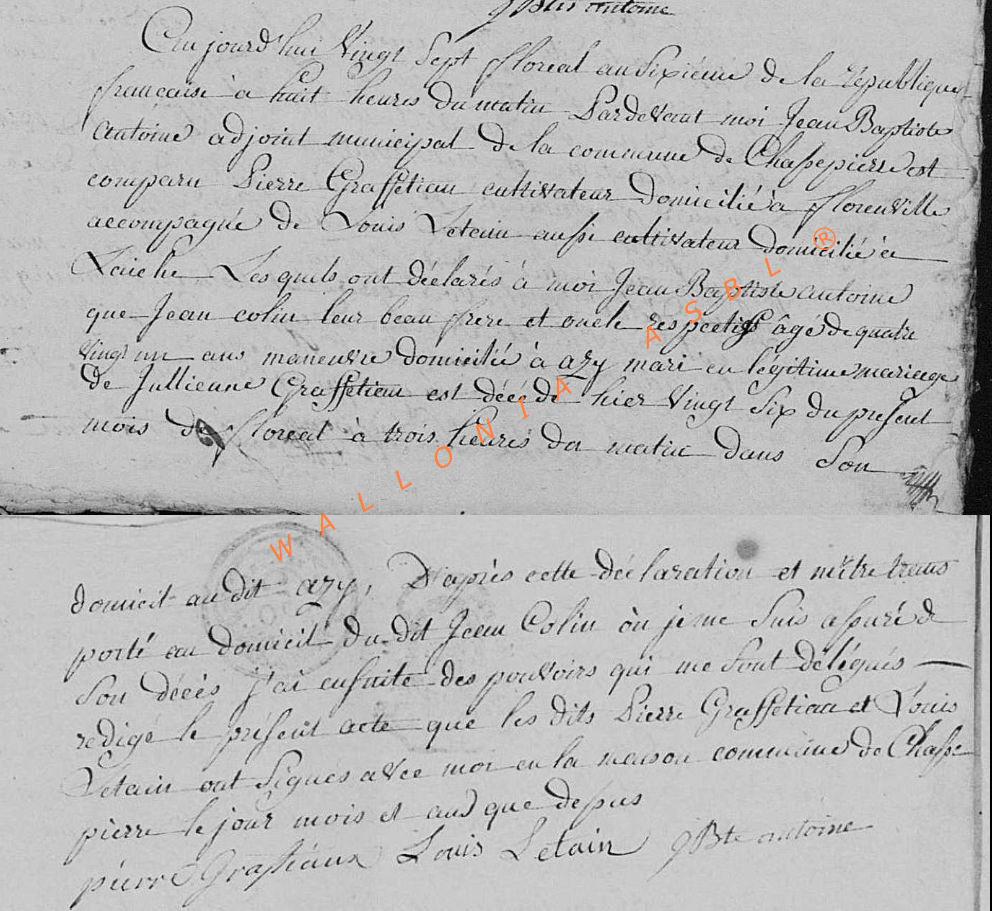 JBte antoine
Au jourd'hui Vingt Sept floreal an Sixieme de la republique
française à huit heures du matin Pardevant moi Jean Baptiste
antoine adjoint municipal de la commune de Chassepierre est
comparu Pierre Graffetiau cultivateur domicilié à florenville
accompagné de Louis Letain aussi cultivateur domicilié à
Laiche Lesquels ont déclarés à moi Jean Baptiste antoine
que Jean colin leur beau frere et oncle respectifs âgé de quatre
Vingt un ans maneuvre domicilié à azy mari en légitime mariage
De Jullienne Graffetiau est décédé hier Vingt Six du présent
mois de floreal à trois heures du matin dans Son
domicil au dit azy, D'après cette déclaration et m'être trans
porté au domicil du dit Jean Colin où je me Suis assuré de
Son décès j'ai ensuite des pouvoirs qui me Sont délégués
redigé le présent acte que les dits Pierre Graffetiau et Louis
Letain ont Signés avec moi en la maison commune de Chasse
pierre le jour mois et and que dessus
pierre Grasiaux Louis Letain JBte antoine
WALLONIA ASBL ®